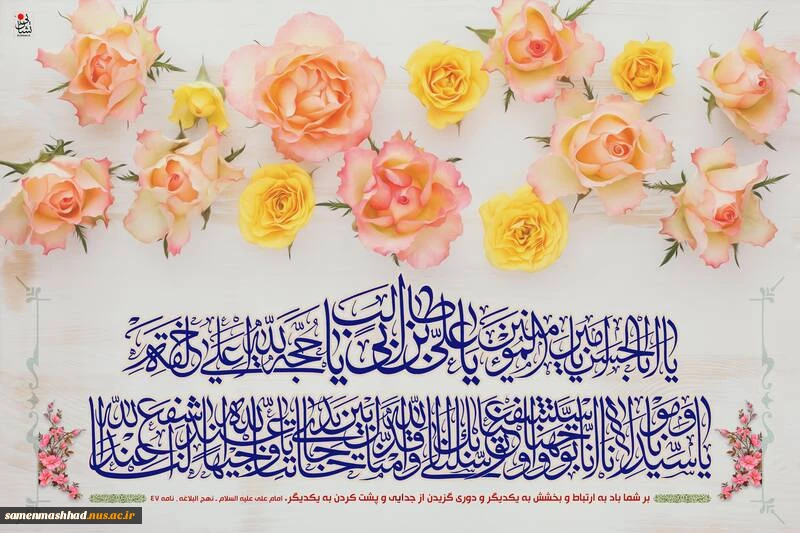 یا اباالحسن یا امیرالمؤمنین یا علی بن ابی طالب یا حجة الله علی خلقه
یا سیدنا و مولانا انا توجهنا و استشفعنا و توسلنا بک الی الله و قدمناک بین یدی حاجاتنا یا وجیها عندالله اشفع لنا عندالله
بر شما باد به ارتباط و بخشش به یکدیگر و دوری گزیدن از جدایی و پشت کردن به یکدیگر. امام علی علیه السلام . نهج البلاغه . نامه ۴۷
samenmashhad.nus.ac.ir